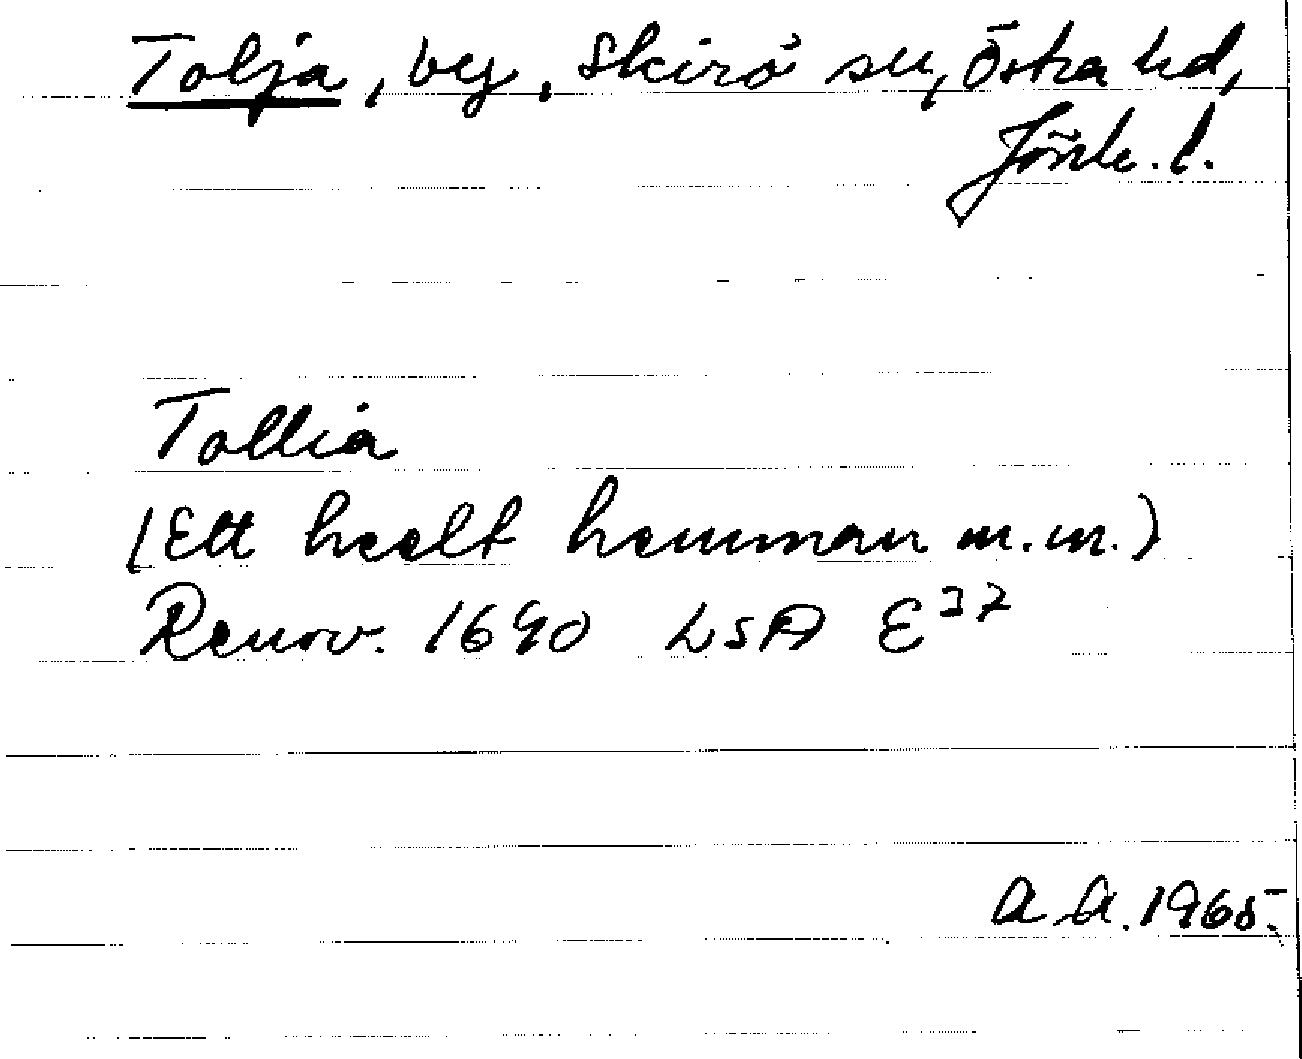 Tolja, by, Skirö sn, Östra hd,
Jönk. l.
Tollia
(Ett heelt hemman m.m.)
Renov. 1690 LSA E37
A.A. 1965.